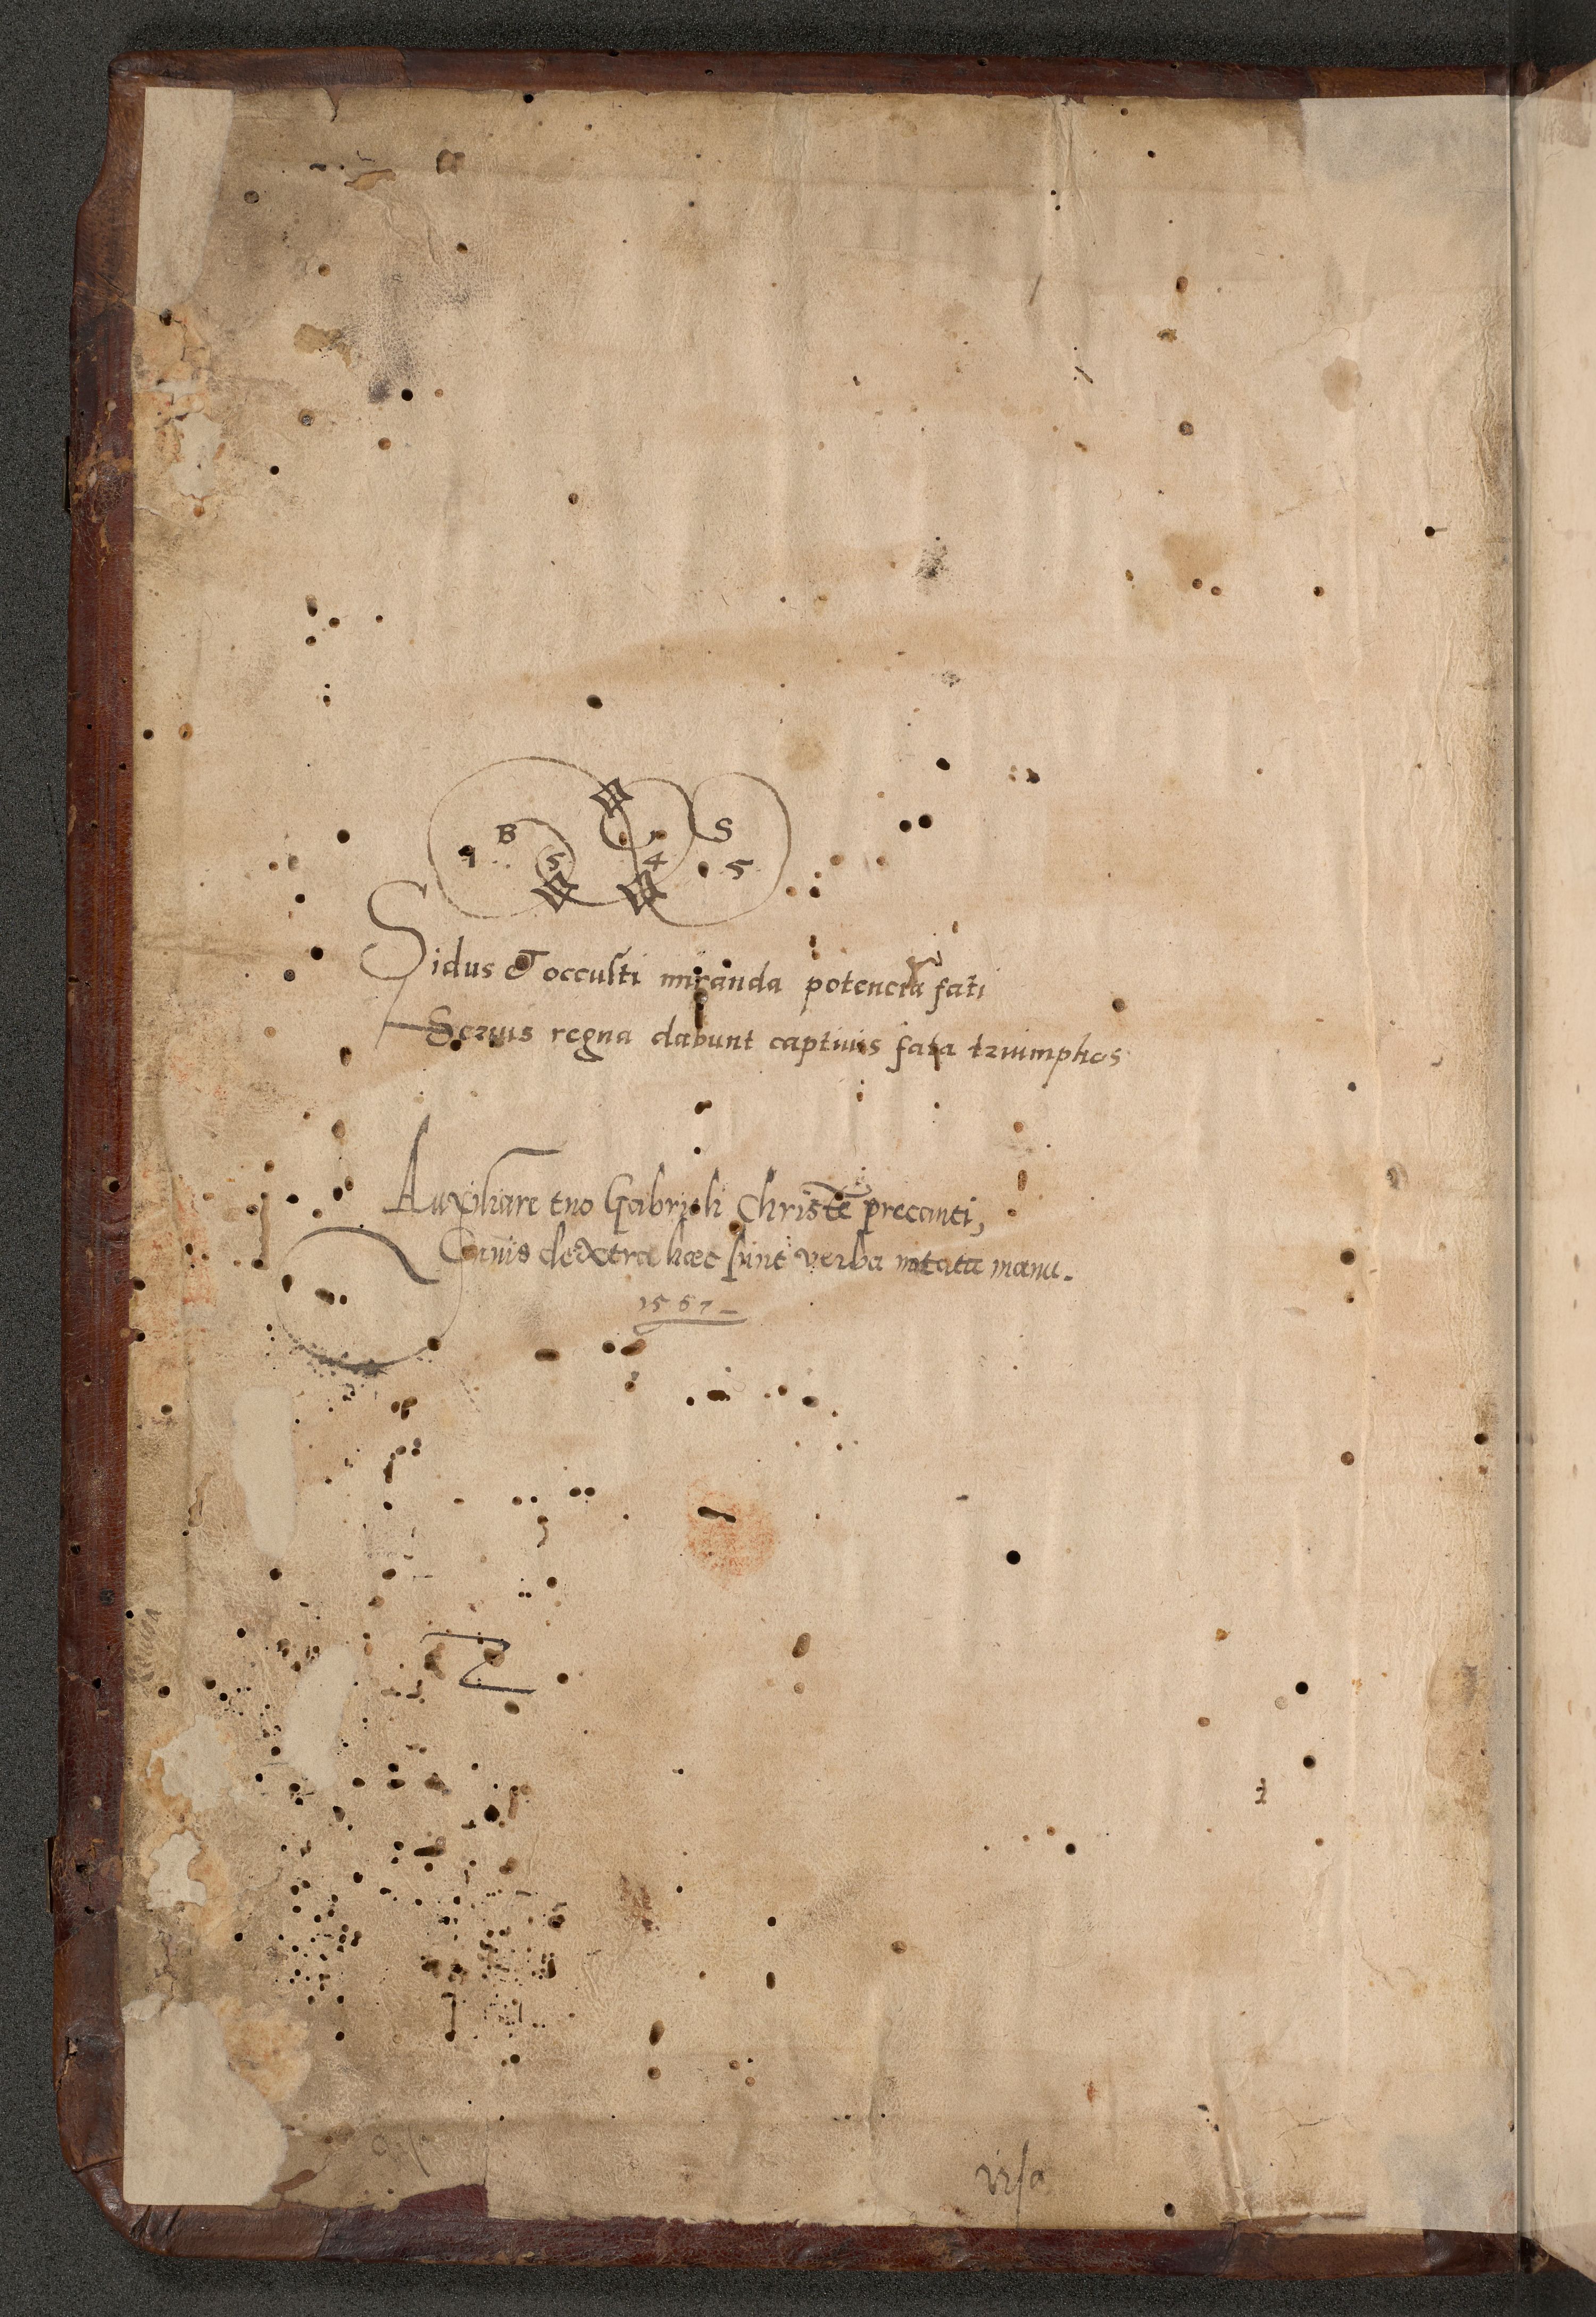 B S
1 5 4 5
Sidus & occulti miranda potencia fati
Servis regna dabunt captivis fata triumphos
Auxiliare tuo Gabrieli Christe precanti,
Cuius dextra haec sunt verba notata manu.
1567